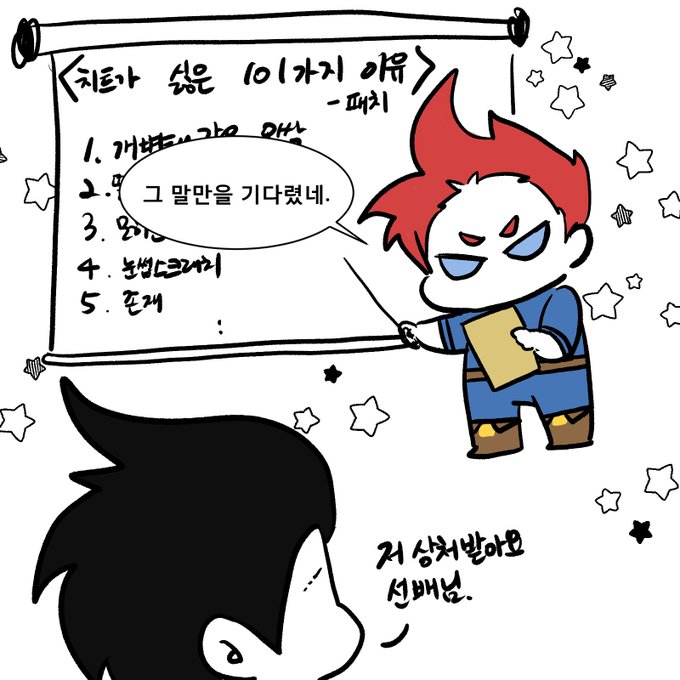 <치트가 싫은 101가지 이유>
- 패치
1. 개변태 같은
2.
3.
4. 눈썹스크래치
5. 존재
:
그 말만을 기다렸네.
저 상처받아요
선배님.